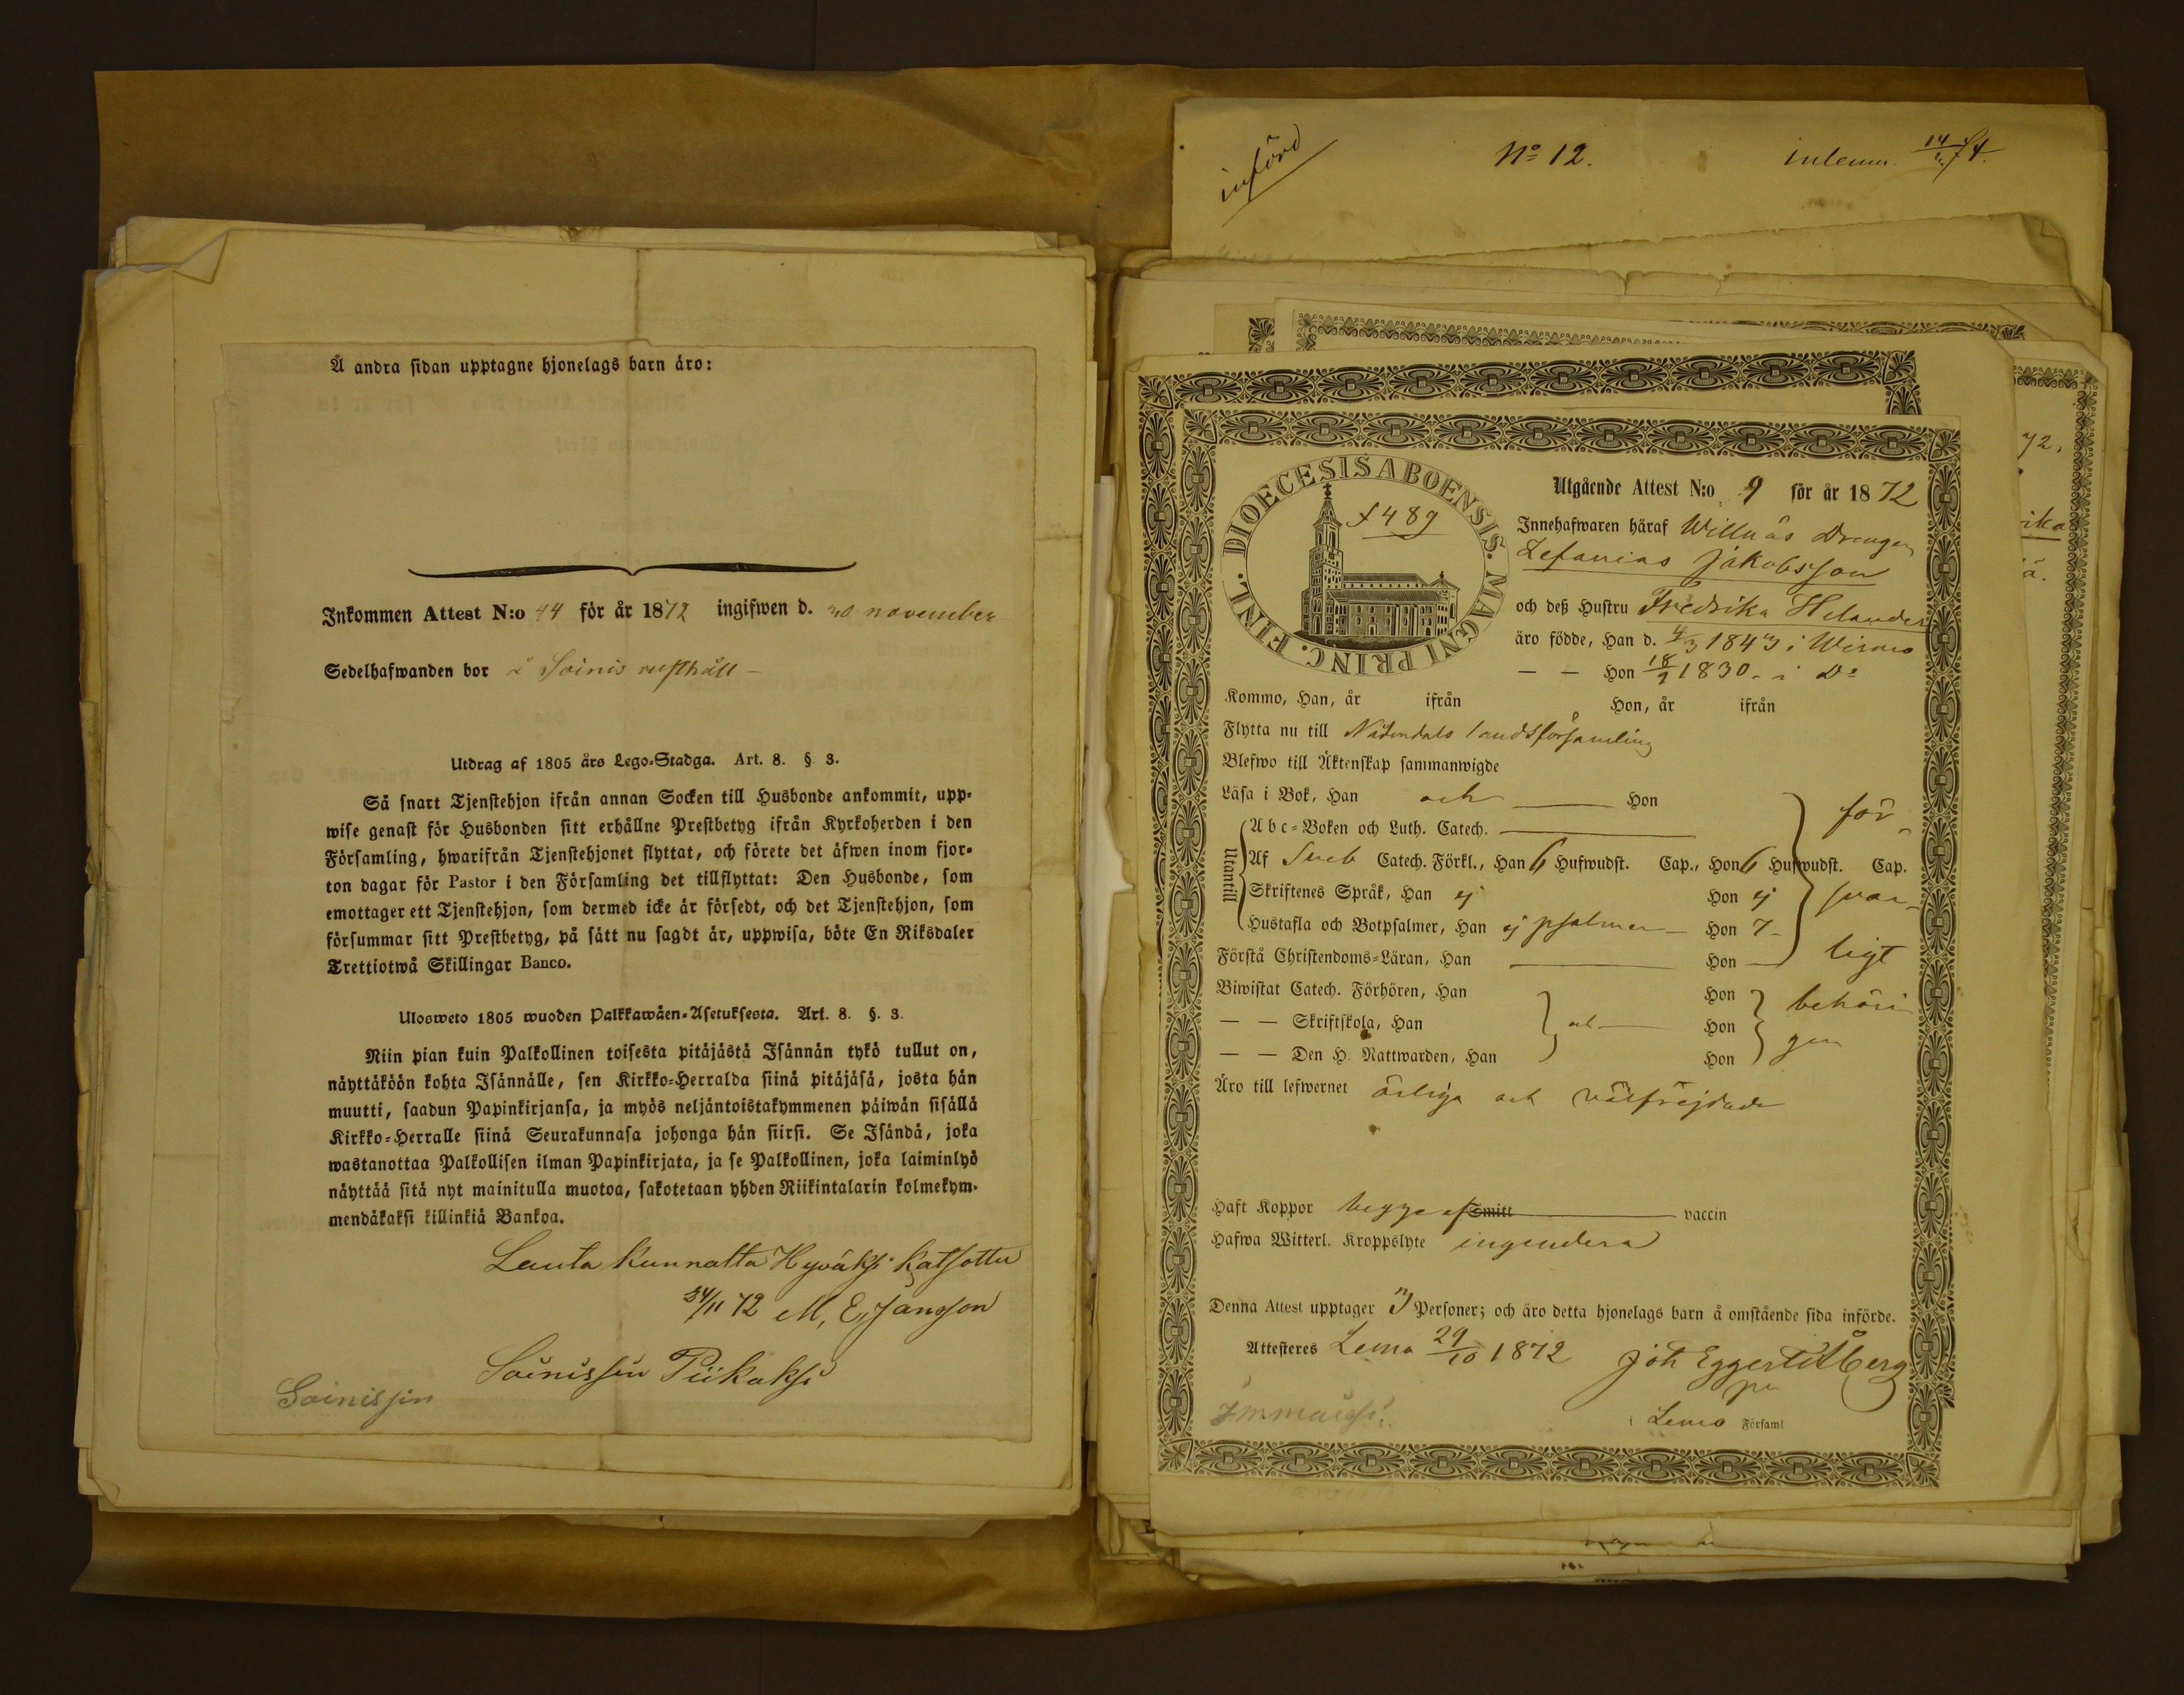 Å andra sidan upptagne hjonelags barn äro:
Inkommen Attest N:o 44 för år 1872 ingifwen d. november
Sedelhafwanden bor å Soinis rusthåll –
Utdrag af 1805 års Lego-Stadga. Art. 8. § 3.
Så snart Tjenstehjon ifrån annan Socken till Husbonde ankommit, upp-
wise genast för Husbonden sitt erhållne Prestbetyg ifrån Kyrkoherden i den
Församling, hwarifrån Tjenstehjonet flyttat, och förete det äfwen inom fjor-
ton dagar för Pastor i den Församling det tillflyttat: Den Husbonde, som
emottager ett Tjenstehjon, som dermed icke är försedt, och det Tjenstehjon, som
försummar sitt Prestbetyg, på sätt nu sagdt är, uppwisa, böte En Riksdaler
Trettiotwå Skillingar Banco.
Ulosweto 1805 wuoden Palkkawäen-Asetuksesta. Art. 8. §. 3.
Niin pian kuin Palkollinen toisesta pitäjästä Isännän tykö tullut on,
näyttäköön kohta Isännälle, sen Kirkko-Herralda siinä pitäjäsä, josta hän
muutti, saadun Papinkirjansa, ja myös neljäntoistakymmenen päiwän sisällä
Kirkko-Herralle siinä Seurakunnasa johonga hän siirsi. Se Isändä, joka
wastanottaa Palkollisen ilman Papinkirjata, ja se Palkollinen, joka laiminlyö
näyttää sitä nyt mainitulla muotoa, sakotetaan yhden Riikintalarin kolmekym-
mendäkaksi killinkiä Bankoa.
Lauta Kunnalta Hyväksi Katsottu
24/11 72 M, E, Jansson
Soinissin Piikaksi
Soinissin
införd
No 12.
inlemn.
DIOECESIS ABOENSIS. MAGNI PRINC. FINL.
f 489
Utgående Attest N:o 9 för år 1872
Innehafwaren häraf Willnäs Drengen
Zefanias Jakobsson
och deß Hustru Fredrika Helander
äro födde, Han d. 4/3 1843 i Wirmo
— — Hon 18/9 1830 - i Do
Kommo, Han, år ifrån Hon, år ifrån
Flytta nu till Nådendals landsförsamling
Blefwo till Äktenskap sammanwigde
Läsa i Bok, Han och Hon
Utantill
Abc-Boken och Luth. Catech.
Af Sveb Catech. Förkl., Han 6 Hufwudst. Cap., Hon 6 Hufwudst. Cap.
Skriftenes Språk, Han ej Hon ej
Hustafla och Botpsalmer, Han ej psalmer – Hon 7 –
Förstå Christendoms-Läran, Han Hon
för-
svar-
ligt
Biwistat Catech. Förhören, Han Hon
— — Skriftskola, Han och Hon
— — Den H. Nattwarden, Han Hon
behöri
gen
Äro till lefwernet ärliga och välfrejdade
Haft Koppor begge af Smitt vaccin
Hafwa Witterl. Kroppslyte ingendera
Denna Attest upptager Personer; och äro detta hjonelags barn å omstående sida införde.
Attesteres Lemo 29/10 1872 Joh Eggert Ölberg
i Lemo Församl
72,
ika
ä.